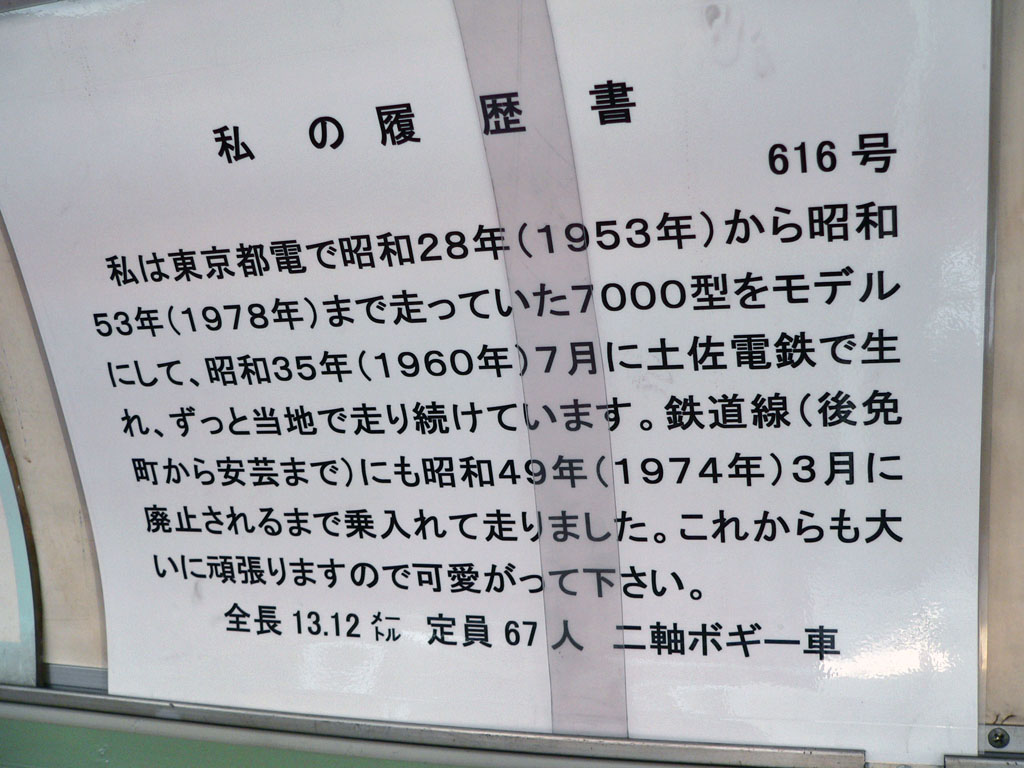 私の履歴書
616号
私は東京都電で昭和28年(1953年)から昭和
53年(1978年)まで走っていた7000型をモデル
にして、昭和35年(1960年)7月に土佐電鉄で生
れ、ずっと当地で走り続けています。鉄道線(後免
町から安芸まで)にも昭和49年(1974年)3月に
廃止されるまで乗入れて走りました。これからも大
いに頑張りますので可愛がって下さい。
全長 13.12 ㍍ 定員 67 人 二軸ボギー車